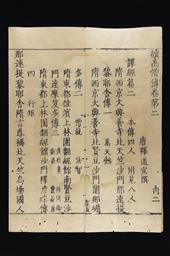 續高僧傳卷第二 內二
唐釋道宣撰
譯經篇二 本傳四人 附見八人
隋西京大興善寺北天竺沙門那連提
黎耶舍傳一 萬天懿
隋西京大興善寺北賢豆沙門闍那崛
多傳二 僧就 法智
隋東都雒濱上林園翻經館南賢豆沙
門達摩笈多傳三
隋東都上林園翻經館沙門釋彥琮傳
四 行矩
那連提黎耶舍隋言尊稱北天竺烏場國人